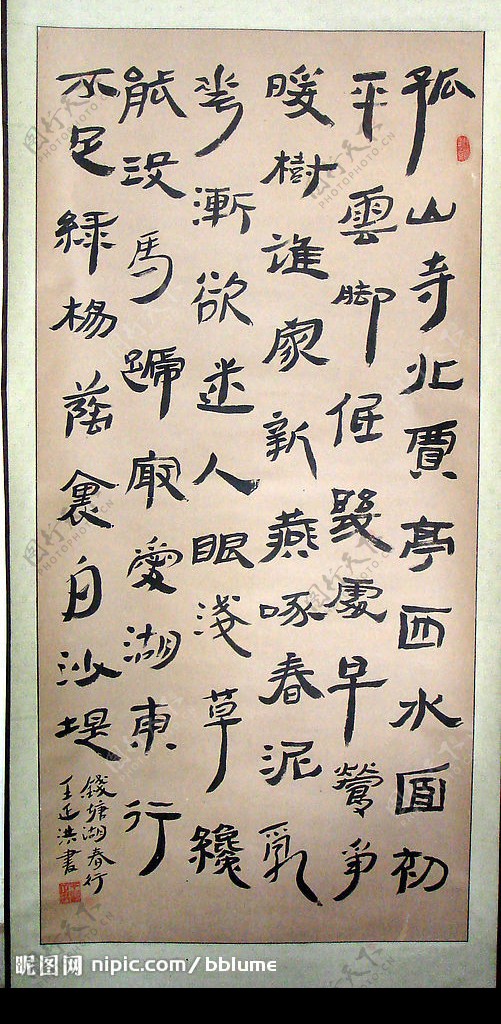 孤山寺北賈亭西水面初
平雲脚低幾處早鶯爭
暖樹誰家新燕啄春泥乳
花漸欲迷人眼淺草纔
能没馬蹄最愛湖東行
不足綠楊蔭裏白沙堤
錢塘湖春行
王延洪書
昵图网 nipic.com/bblume
图行天下 PHOTOPHOTO.CN